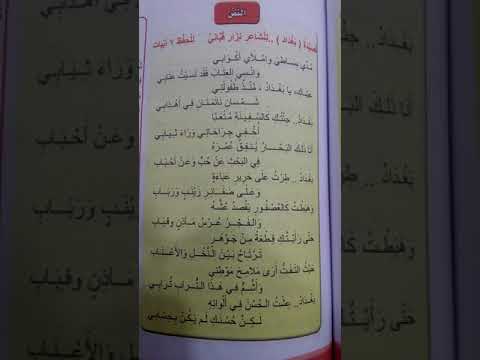 النص
قصيدة ( بغداد ) .. للشاعر نزار قباني للحفظ ٧ أبيات
مُدّي بساطي وأملأي أكوابي
وانسي العتاب فقد نسيتُ عتابي
عيناكِ، يا بغداد ، منذُ طفولتي
شمسانِ نائمتانِ في أهدابي
بغداد.. جئتُكِ كالسفينةِ مُتعباً
أخفي جراحاتي وراءَ ثيابي
أنا ذلك البحّارُ يُنفقُ عمرَهُ
في البحثِ عن حبٍّ وعن أحبابِ
بغداد .. طرتُ على حريرِ عباءةٍ
وعلى ضفائرِ زينبٍ وربابِ
وهبطتُ كالعصفورِ يقصدُ عشَّهُ
والفجرُ عرسُ مآذنٍ وقبابِ
حتى رأيتُكِ قطعةً من جوهرٍ
ترتاحُ بينَ النخلِ والأعنابِ
حيثُ التفتُّ أرى ملامحَ موطني
وأشمُّ في هذا الترابِ ترابي
بغداد.. عشتُ الحُسنَ في ألوانِهِ
لكنَّ حُسنَكِ لم يكنْ بحسابي